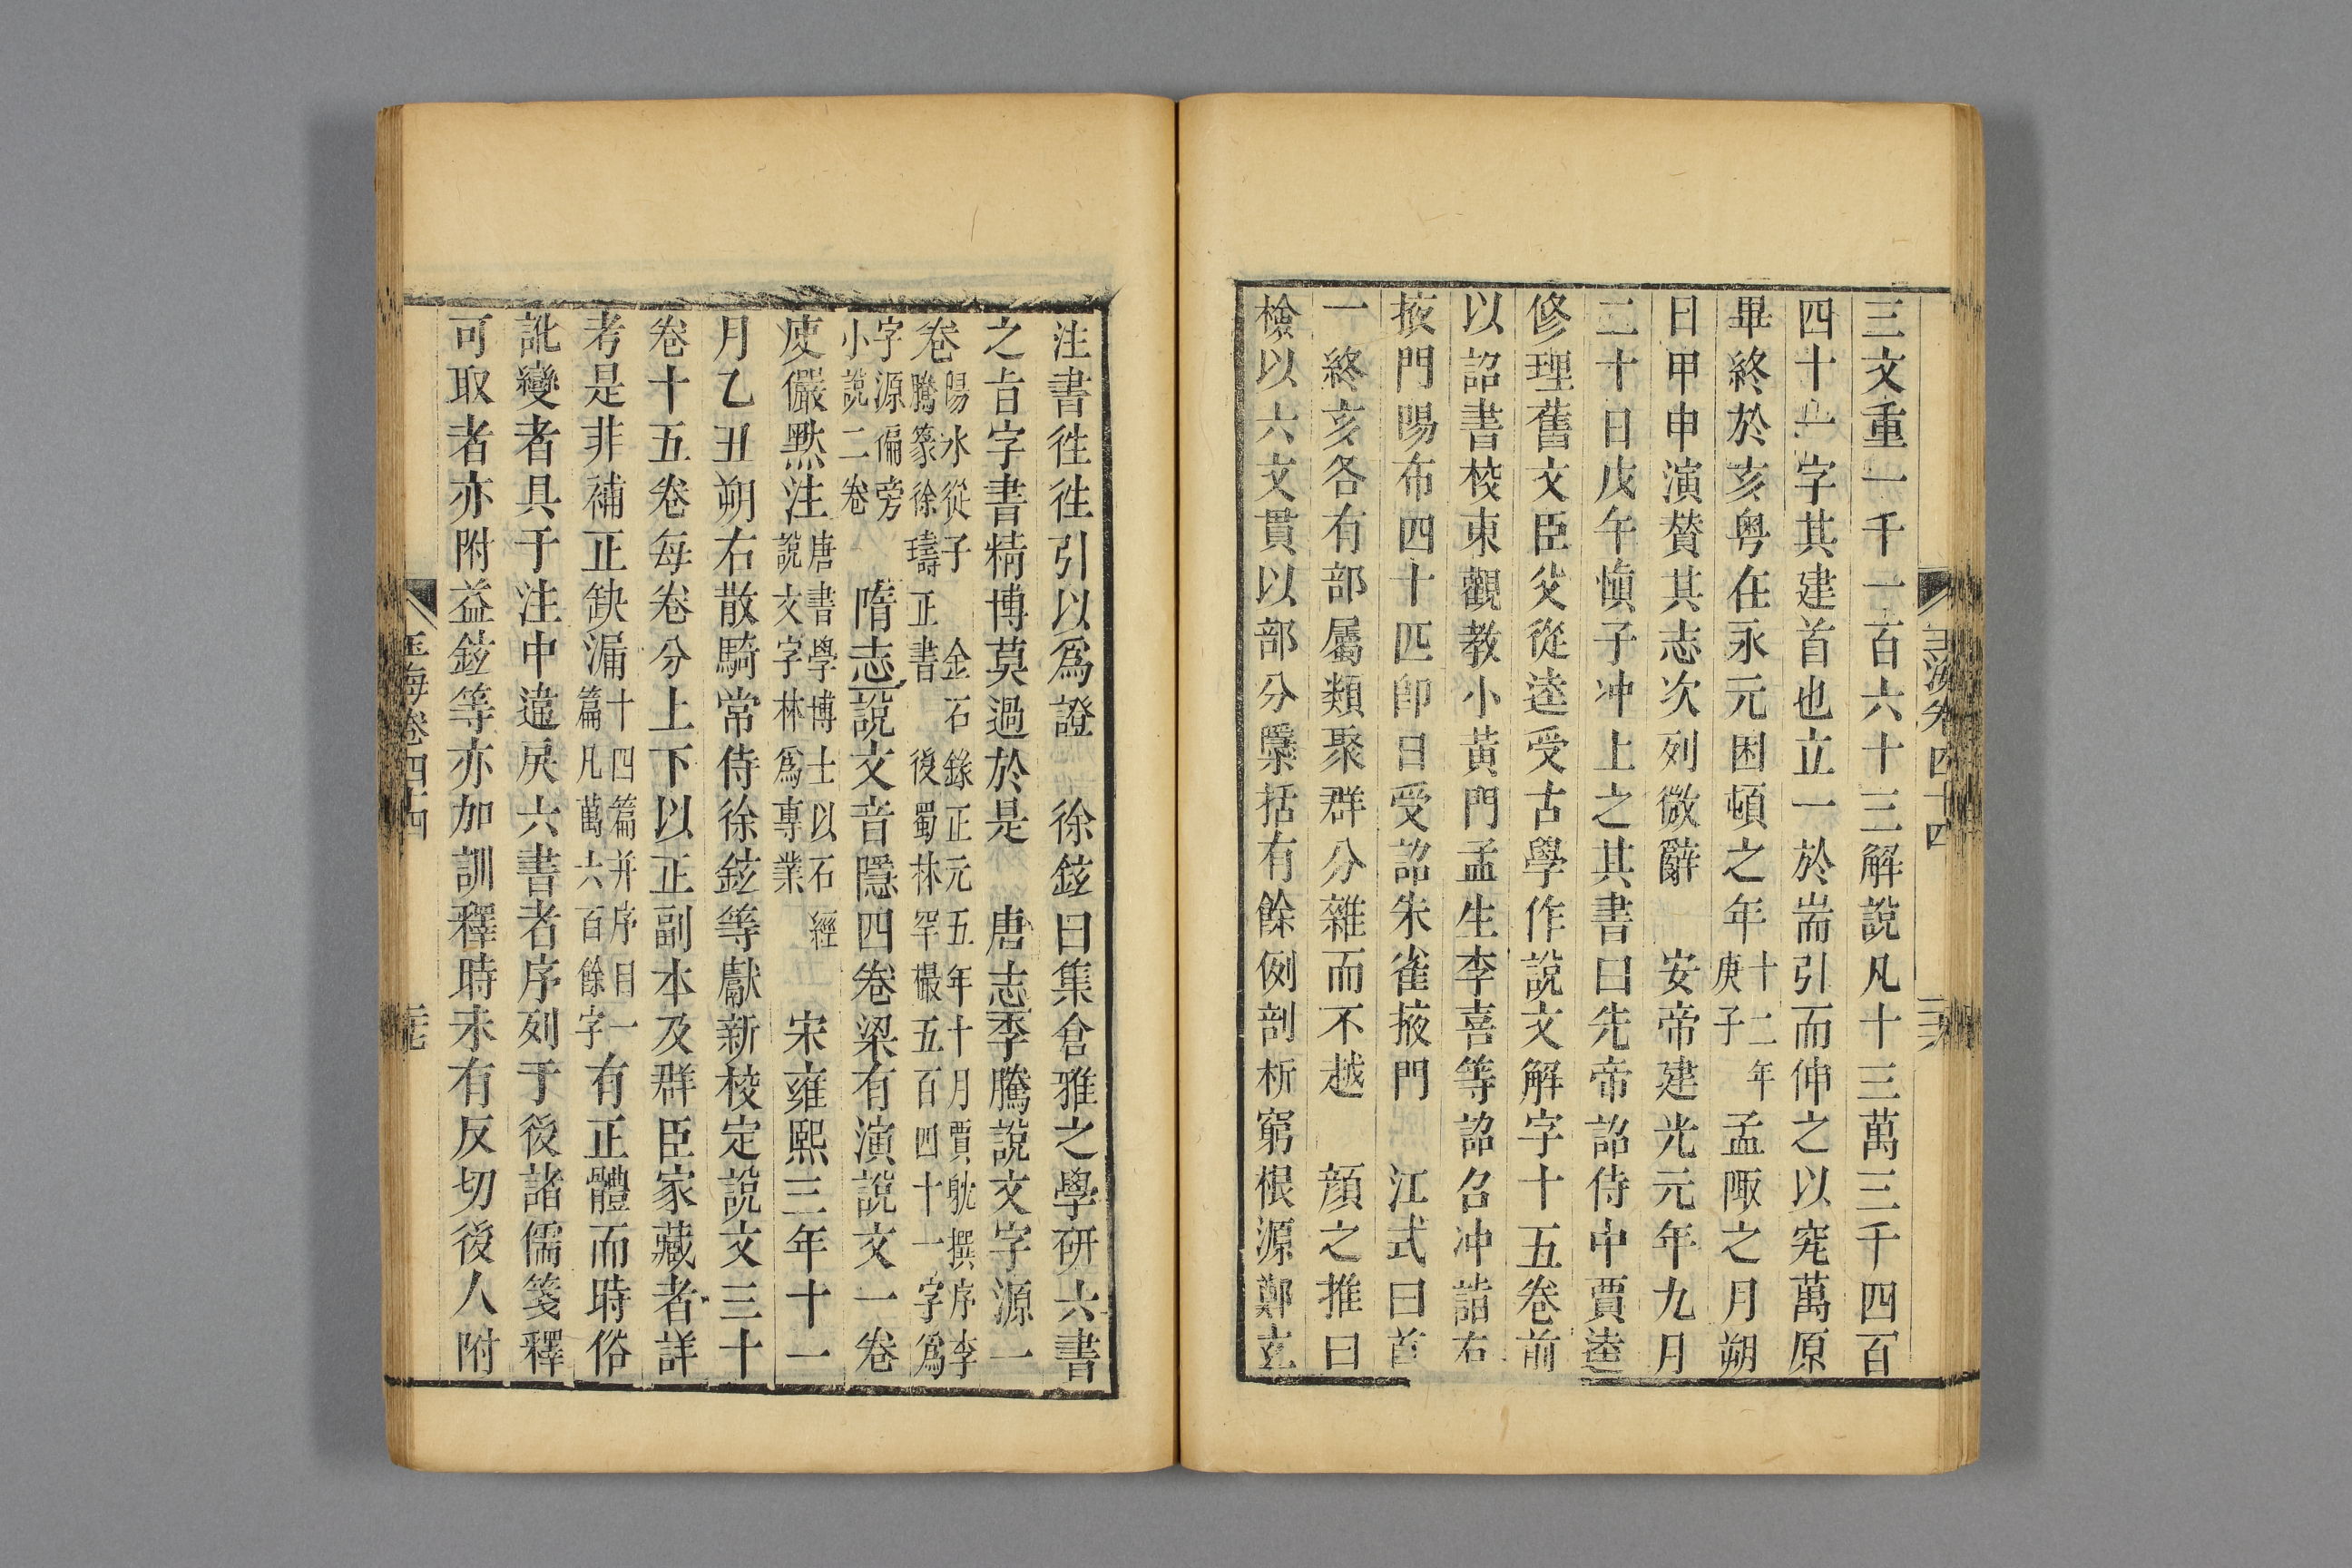 三文重一千一百六十三解說凡十三萬三千四百
四十一字其建首也立一於耑引而伸之以究萬原
畢終於亥粤在永元困頓之年十二年庚子孟陬之月朔
日甲申演贊其志次列微辭 安帝建光元年九月
二十日戊午愼子冲上之其書曰先帝詔侍中賈逵
修理舊文臣父從逵受古學作說文解字十五卷前
以詔書校東觀教小黄門孟生李喜等詔召冲詣右
掖門賜布四十匹卽日受詔朱雀掖門 江式曰首
一終亥各有部屬類聚群分雜而不越 顔之推曰
檢以六文貫以部分隱括有餘例剖析窮根源鄭玄
玉海卷四十四
注書徃徃引以爲證 徐鉉曰集倉雅之學研六書
之旨字書精博莫過於是 唐志李騰說文字源一
卷陽水從子 金石錄正元五年十月賈躭撰序李騰篆徐璹正書 後蜀林罕撮五百四十一字爲
字源偏旁小說二卷 隋志說文音隱四卷梁有演說文一卷
庾儼黙注唐書學博士以石經說文字林爲專業 宋雍熙三年十一
月乙丑朔右散騎常侍徐鉉等獻新校定說文三十
卷十五卷每卷分上下以正副本及群臣家藏者詳
考是非補正缺漏十四篇并序目一篇凡萬六百餘字有正體而時俗
訛變者具于注中違戾六書者序列于後諸儒箋釋
可取者亦附益鉉等亦加訓釋時未有反切後人附
玉海卷四十四